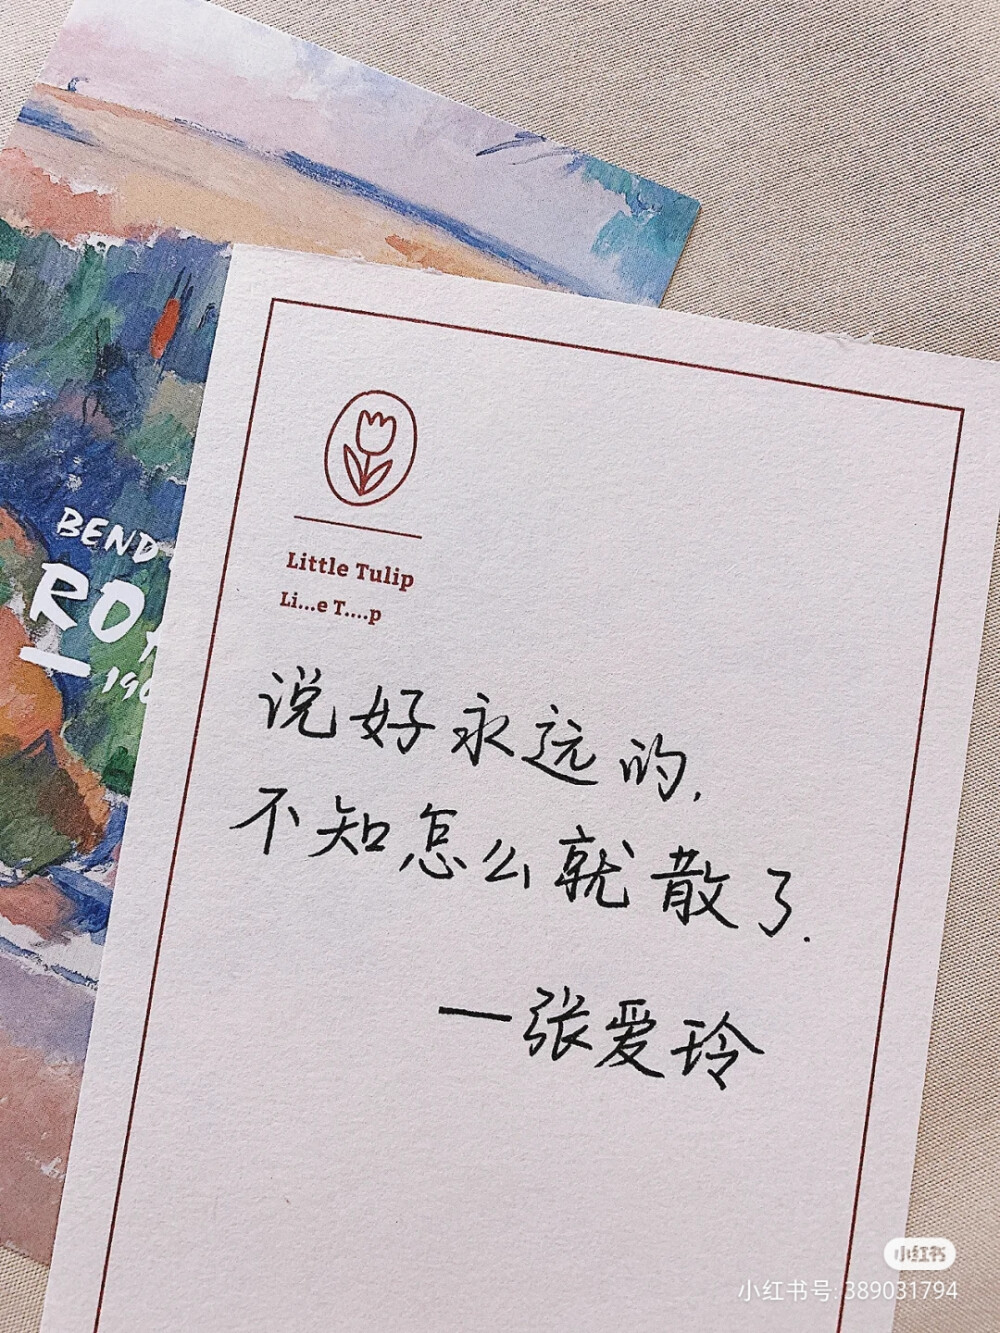 BEND
RO
190
Little Tulip
Li...e T....p
说好永远的,
不知怎么就散了.
—张爱玲
小红书
小红书号: 389031794